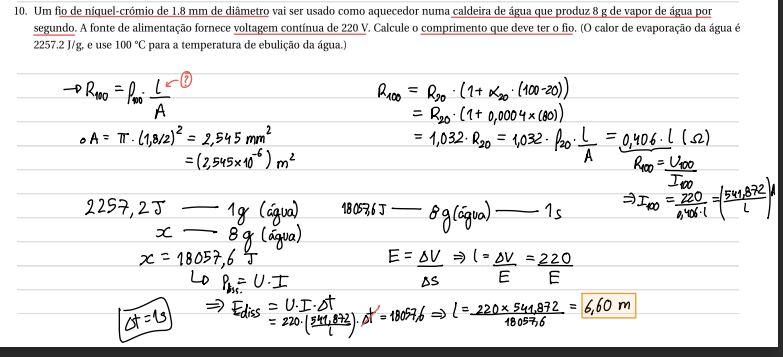 10. Um fio de níquel-crómio de 1.8 mm de diâmetro vai ser usado como aquecedor numa caldeira de água que produz 8 g de vapor de água por
segundo. A fonte de alimentação fornece voltagem contínua de 220 V. Calcule o comprimento que deve ter o fio. (O calor de evaporação da água é
2257.2 J/g, e use 100 °C para a temperatura de ebulição da água.)
→ R₁₀₀ = ρ₁₀₀ · l/A ← ?
∘ A = π · (1,8/2)² = 2,545 mm²
= (2,545×10⁻⁶) m²
R₁₀₀ = R₂₀ · (1 + α₂₀ · (100-20))
= R₂₀ · (1 + 0,0004 × (80))
= 1,032 · R₂₀ = 1,032 · ρ₂₀ · l/A = 0,406 · l (Ω)
R₁₀₀ = U₁₀₀/I₁₀₀
⇒ I₁₀₀ = 220/0,406·l = (541,872/l) A
2257,2 J — 1g (água)
x — 8g (água)
x = 18057,6 J
↳ P diss. = U · I
18057,6 J — 8g (água) — 1s
E = ΔV/ΔS ⇒ l = ΔV/E = 220/E
Δt = 1s
⇒ Ediss = U · I · Δt
= 220 · (541,872/l) · Δt = 18057,6 ⇒ l = 220 × 541,872/18057,6 = 6,60 m